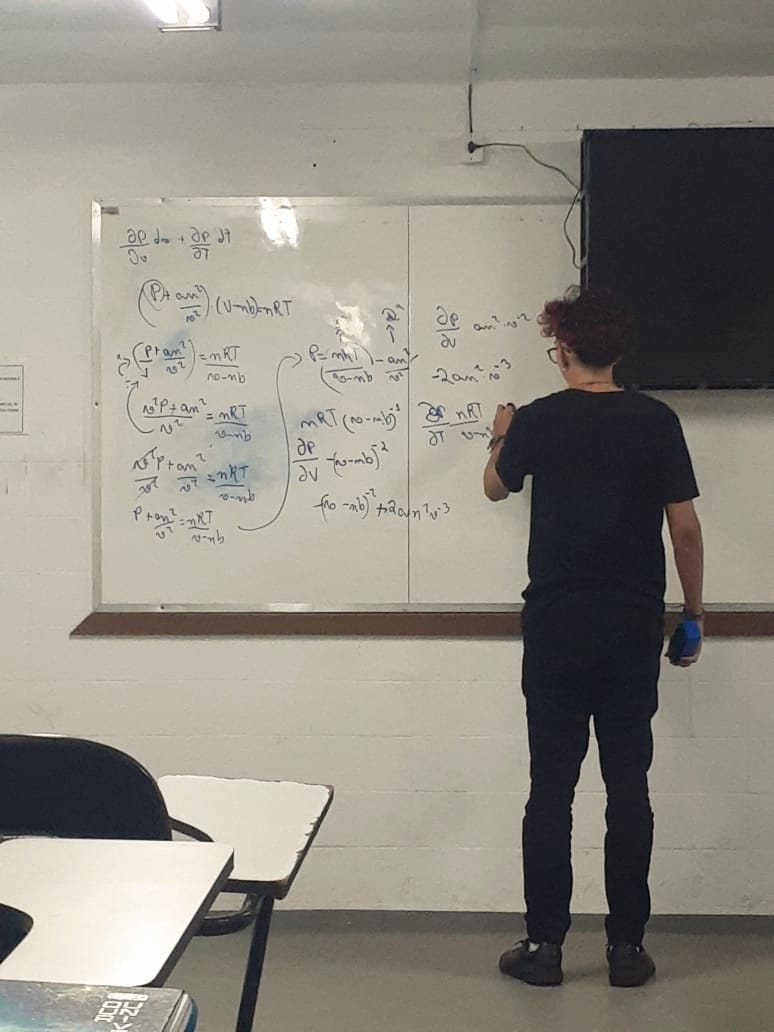 ∂P/∂v dv + ∂P/∂T dT
(P + an²/v²) · (V-nb) = nRT
(P + an²/v²) = nRT/v-nb
v²P + an²/v² = nRT/v-nb
v²P/v² + an²/v² = nRT/v-nb
P + an²/v² = nRT/v-nb
P = (nRT/v-nb) - an²/v²
nRT (v-nb)⁻¹
∂P/∂V -(v-nb)⁻²
-(v-nb)⁻² + 2an²v⁻³
∂P/∂V an² · v⁻²
-2an² · v⁻³
∂P/∂T nRT/v-n